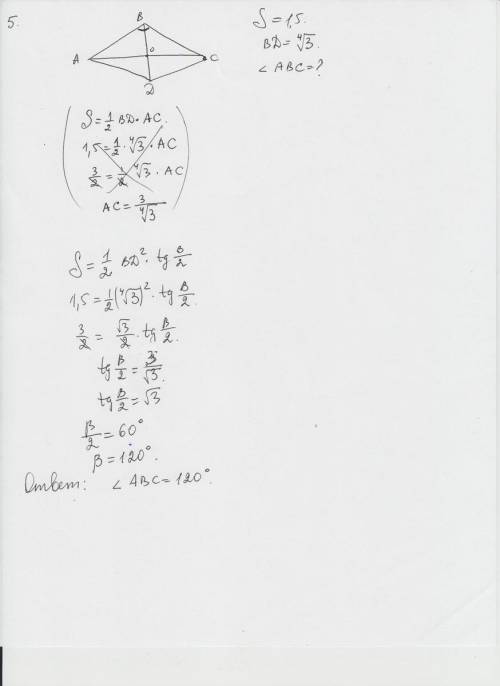 5.
B
A
O
C
D
S = 1,5.
BD = ∜3.
∠ABC = ?
S = 1/2 BD · AC.
1,5 = 1/2 · ∜3 · AC
3/2 = 1/2 ∜3 · AC
AC = 3/∜3
S = 1/2 BD² · tg B/2
1,5 = 1/2 (∜3)² · tg B/2.
3/2 = √3/2 · tg B/2.
tg B/2 = 3/√3.
tg B/2 = √3
B/2 = 60°
B = 120°.
Ответ: ∠ABC = 120°.